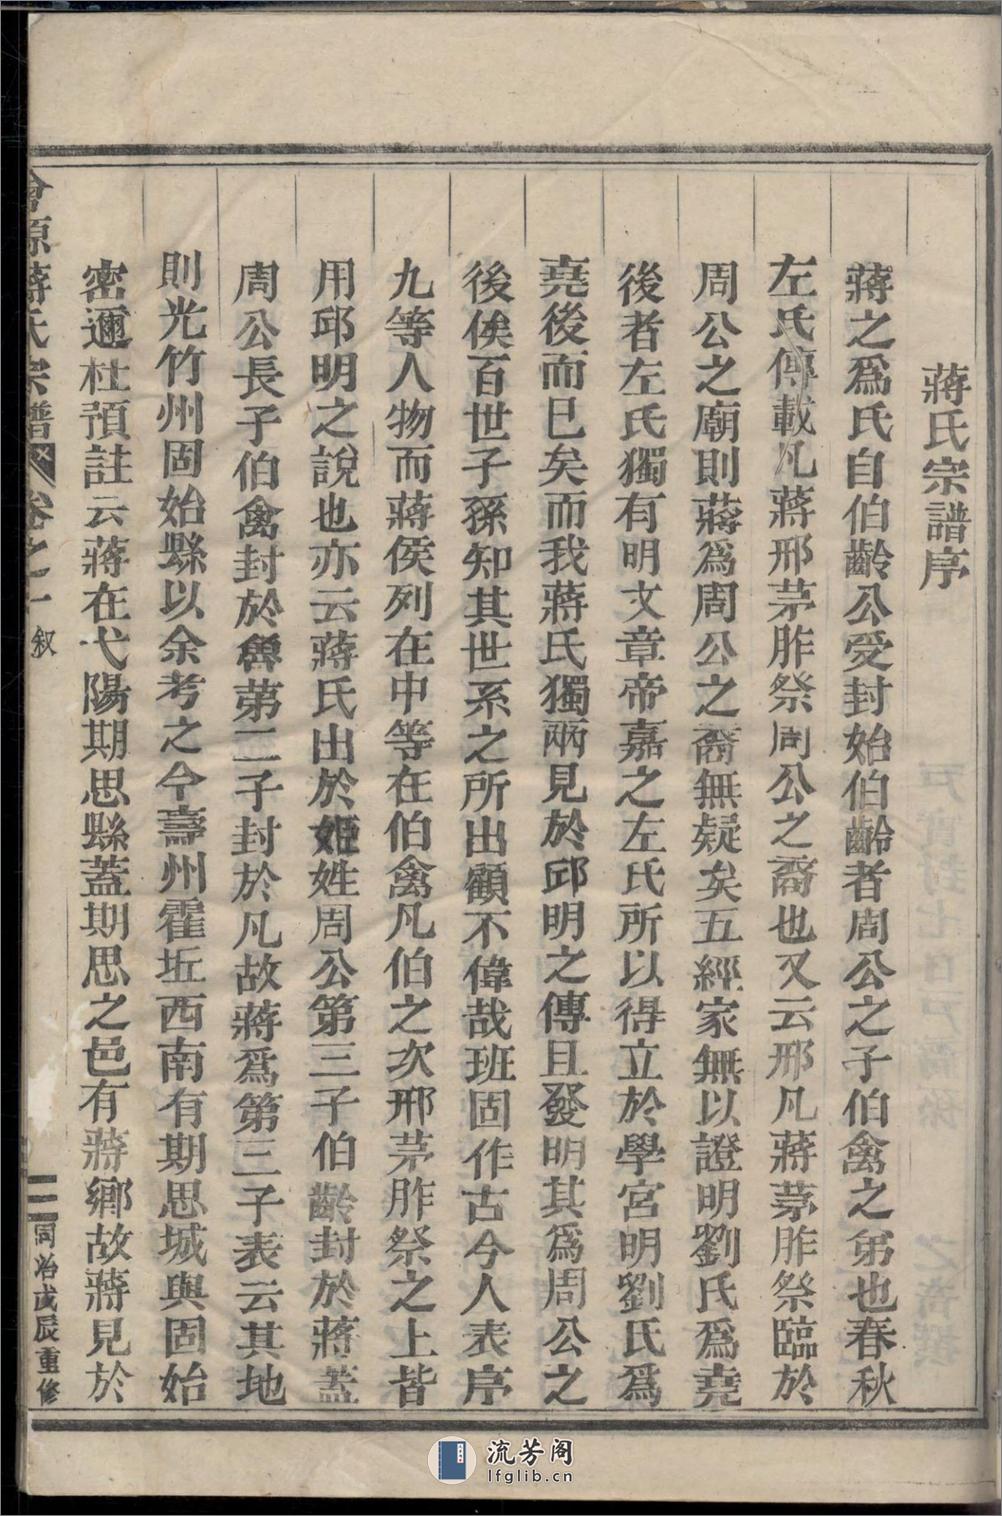 蔣氏宗譜序
蔣之爲氏自伯齡公受封始伯齡者周公之子伯禽之弟也春秋
左氏傳載凡蔣邢茅胙祭周公之裔也又云邢凡蔣茅胙祭臨於
周公之廟則蔣爲周公之裔無疑矣五經家無以證明劉氏爲堯
後者左氏獨有明文章帝嘉之左氏所以得立於學宮明劉氏爲
堯後而已矣而我蔣氏獨兩見於邱明之傳且發明其爲周公之
後俟百世子孫知其世系之所出顧不偉哉班固作古今人表序
九等人物而蔣侯列在中等在伯禽凡伯之次邢茅胙祭之上皆
用邱明之說也亦云蔣氏出於姬姓周公第三子伯齡封於蔣蓋
周公長子伯禽封於魯第二子封於凡故蔣爲第三子表云其地
則光竹州固始縣以余考之今壽州霍坵西南有期思城與固始
密邇杜預註云蔣在弋陽期思縣蓋期思之邑有蔣鄉故蔣見於
會源蔣氏宗譜 卷之一 叙 同治戊辰重修
流芳阁
lfglib.cn